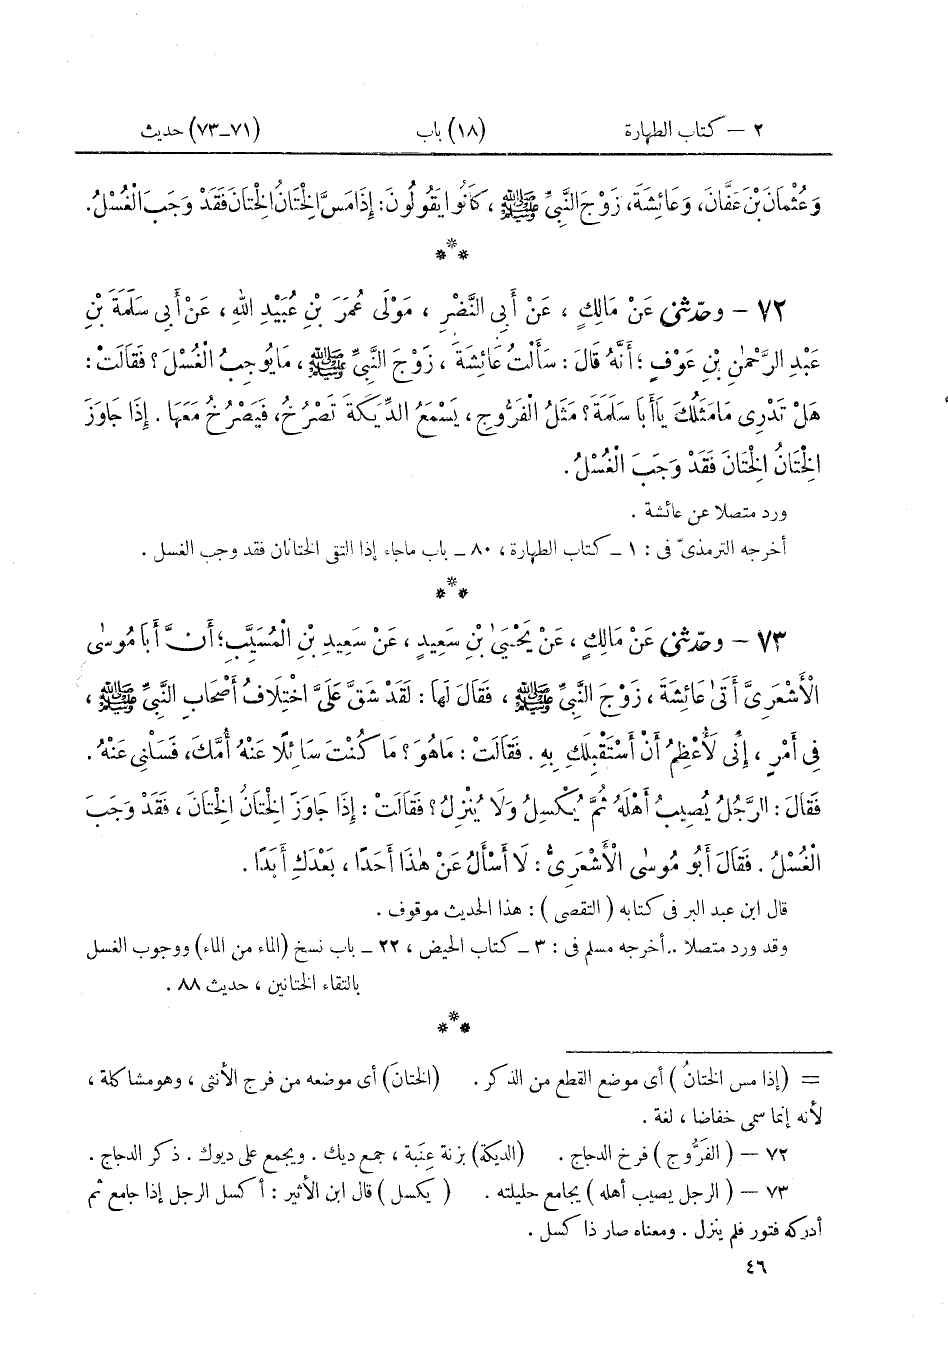 ٢ — كتاب الطهارة (١٨) باب (٧١-٧٣) حديث
وَعُثْمَانَ بْنَ عَفَّانَ، وَعَائِشَةَ، زَوْجَ النَّبِيِّ ﷺ، كَانُوا يَقُولُونَ: إِذَا مَسَّ الْخِتَانُ الْخِتَانَ فَقَدْ وَجَبَ الْغُسْلُ.
***
٧٢ — وحدّثنى عَنْ مَالِكٍ، عَنْ أَبِى النَّضْرِ، مَوْلَى عُمَرَ بْنِ عُبَيْدِ اللهِ، عَنْ أَبِى سَلَمَةَ بْنِ
عَبْدِ الرَّحْمٰنِ بْنِ عَوْفٍ؛ أَنَّهُ قَالَ: سَأَلْتُ عَائِشَةَ، زَوْجَ النَّبِيِّ ﷺ، مَا يُوجِبُ الْغُسْلَ؟ فَقَالَتْ:
هَلْ تَدْرِى مَا مَثَلُكَ يَا أَبَا سَلَمَةَ؟ مَثَلُ الْفَرُّوجِ، يَسْمَعُ الدِّيَكَةَ تَصْرُخُ، فَيَصْرُخُ مَعَهَا. إِذَا جَاوَزَ
الْخِتَانُ الْخِتَانَ فَقَدْ وَجَبَ الْغُسْلُ.
ورد متصلا عن عائشة.
أخرجه الترمذىّ فى: ١ ـ كتاب الطهارة، ٨٠ ـ باب ماجاء إذا التقى الختانان فقد وجب الغسل.
***
٧٣ — وحدّثنى عَنْ مَالِكٍ، عَنْ يَحْيَىٰ بْنِ سَعِيدٍ، عَنْ سَعِيدِ بْنِ الْمُسَيَّبِ؛ أَنَّ أَبَا مُوسٰى
الْأَشْعَرِىَّ أَتَىٰ عَائِشَةَ، زَوْجَ النَّبِيِّ ﷺ، فَقَالَ لَهَا: لَقَدْ شَقَّ عَلَىَّ اخْتِلَافُ أَصْحَابِ النَّبِيِّ ﷺ،
فِى أَمْرٍ، إِنِّى لَأُعْظِمُ أَنْ أَسْتَقْبِلَكِ بِهِ. فَقَالَتْ: مَا هُوَ؟ مَا كُنْتَ سَائِلًا عَنْهُ أُمَّكَ، فَسَلْنِى عَنْهُ.
فَقَالَ: الرَّجُلُ يُصِيبُ أَهْلَهُ ثُمَّ يُكْسِلُ وَلَا يُنْزِلُ؟ فَقَالَتْ: إِذَا جَاوَزَ الْخِتَانُ الْخِتَانَ، فَقَدْ وَجَبَ
الْغُسْلُ. فَقَالَ أَبُو مُوسٰى الْأَشْعَرِىُّ: لَا أَسْأَلُ عَنْ هٰذَا أَحَدًا، بَعْدَكِ أَبَدًا.
قال ابن عبد البر فى كتابه (التقصى): هذا الحديث موقوف.
وقد ورد متصلا.. أخرجه مسلم فى: ٣ ـ كتاب الحيض، ٢٢ ـ باب نسخ (الماء من الماء) ووجوب الغسل
بالتقاء الختانين، حديث ٨٨.
***
= (إذا مس الختانُ) أى موضع القطع من الذكر. (الختانَ) أى موضعه من فرج الأنثى، وهو مشاكلة،
لأنه إنما سمى خفاضا، لغة.
٧٢ — (الفَرُّوج) فرخ الدجاج. (الديكة) بزنة عِنَبة، جمع ديك. ويجمع على ديوك. ذكر الدجاج.
٧٣ — (الرجل يصيب أهله) يجامع حليلته. (يكسل) قال ابن الأثير: أكسل الرجل إذا جامع ثم
أدركه فتور فلم ينزل. ومعناه صار ذا كسل.
٤٦